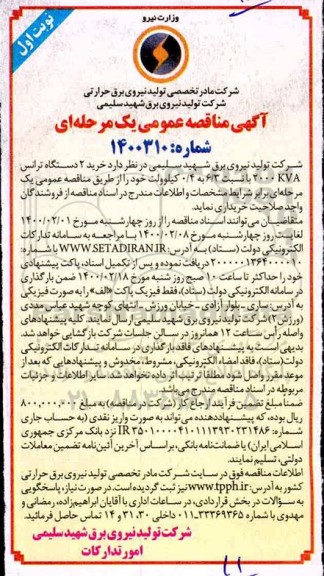 نوبت اول
وزارت نیرو
شرکت مادر تخصصی تولید نیروی برق حرارتی
شرکت تولید نیروی برق شهید سلیمی
آگهی مناقصه عمومی یک مرحله‌ای
شماره: ۱۴۰۰۳۱۰
شرکت تولید نیروی برق شهید سلیمی در نظر دارد خرید ۲ دستگاه ترانس
KVA ۲۰۰۰ با نسبت ۶/۳ به ۰/۴ کیلوولت خود را از طریق مناقصه عمومی یک
مرحله‌ای برابر شرایط مشخصات و اطلاعات مندرج در اسناد مناقصه از فروشندگان
واجد صلاحیت خریداری نماید.
متقاضیان می‌توانند اسناد مناقصه را از روز چهارشنبه مورخ ۱۴۰۰/۰۲/۰۱
لغایت روز چهارشنبه مورخ ۱۴۰۰/۰۲/۰۸ با مراجعه به سامانه تدارکات
الکترونیکی دولت (ستاد) به آدرس: WWW.SETADIRAN.IR با شماره:
دریافت نموده و پس از تکمیل اسناد، پاکت پیشنهادی
خود را حداکثر تا ساعت ۱۰ صبح روز شنبه مورخ ۱۴۰۰/۰۲/۱۸ ضمن بارگذاری
در سامانه الکترونیکی دولت (ستاد)، فقط فیزیک پاکت «الف» را به صورت فیزیکی
به آدرس: ساری - بلوار آزادی - خیابان ورزش - انتهای کوچه شهید عباس مددی
(ورزش ۲) شرکت تولید نیروی برق شهید سلیمی ارسال نمایند. کلیه پیشنهادهای
واصله رأس ساعت ۱۲ همان روز در سالن جلسات شرکت بازگشایی خواهد شد.
بدیهی است به پیشنهادهای فاقد بارگذاری در سامانه تدارکات الکترونیکی
دولت (ستاد)، فاقد امضاء الکترونیکی، مشروط، مخدوش و پیشنهادهایی که بعد از
موعد مقرر واصل شود مطلقا ترتیب اثر داده نخواهد شد. سایر اطلاعات و جزئیات
مربوطه در اسناد مناقصه مندرج می‌باشد.
ضمنا مبلغ تضمین فرآیند ارجاع کار (شرکت در مناقصه) به مبلغ ۸۰۰,۰۰۰,۰۰۰
ریال بوده، که پیشنهاددهنده می‌تواند به صورت واریز نقدی (به حساب جاری
شماره: نزد بانک مرکزی جمهوری
اسلامی ایران) یا ضمانت‌نامه بانکی، براساس آخرین آئین‌نامه تضمین معاملات
دولتی، تسلیم نمایند.
اطلاعات مناقصه فوق در سایت شرکت مادر تخصصی تولید نیروی برق حرارتی
کشور به آدرس: www.tpph.ir نیز ثبت گردیده است. در صورت نیاز، پاسخگویی
به سؤالات در بخش قراردادی، در ساعات اداری با آقایان ابراهیم‌زاده، رمضانی و
مهدوی با شماره ۳۳۳۶۹۳۶۵-۰۱۱ داخلی ۲۱۳۰ و ۱۴ تماس حاصل فرمائید.
شرکت تولید نیروی برق شهید سلیمی
امور تدارکات